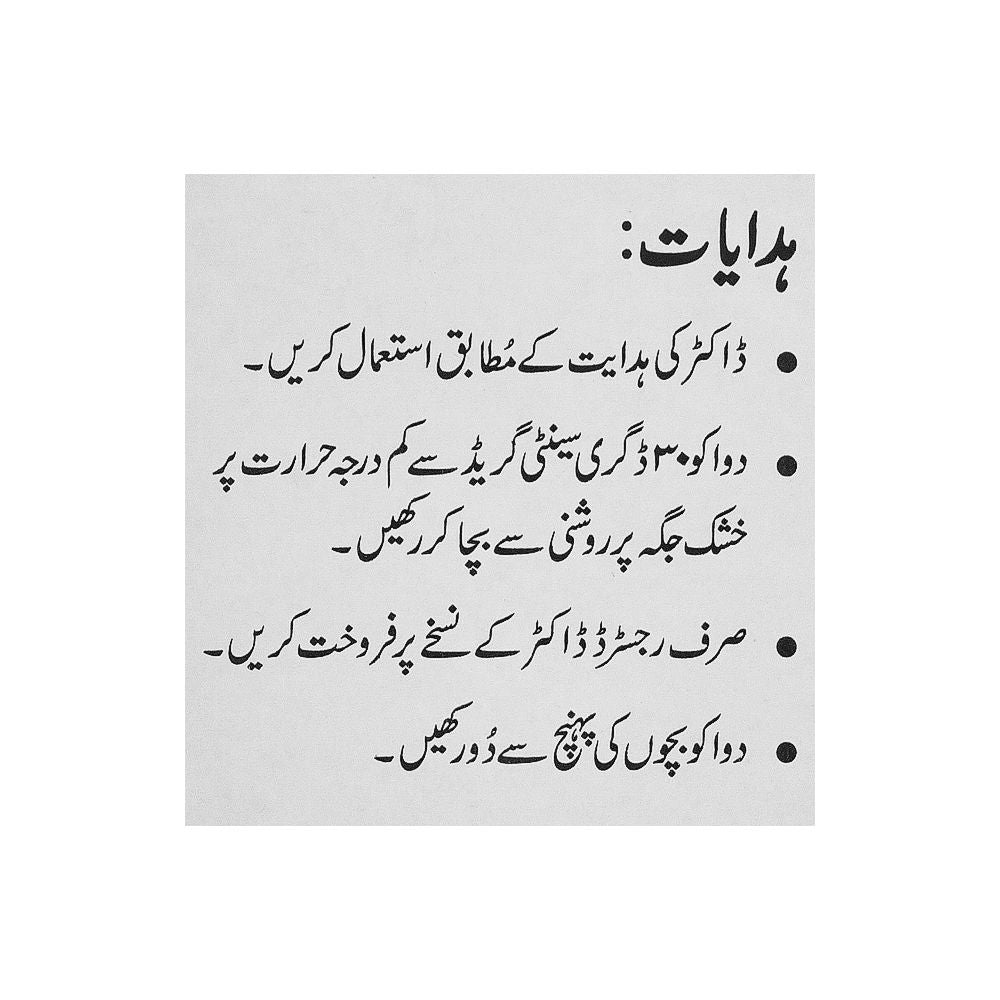 ہدایات:
● ڈاکٹر کی ہدایت کے مُطابق استعمال کریں۔
● دوا کو ۳۰ ڈگری سینٹی گریڈ سے کم درجہ حرارت پر
خشک جگہ پر روشنی سے بچا کر رکھیں۔
● صرف رجسٹرڈ ڈاکٹر کے نسخے پر فروخت کریں۔
● دوا کو بچوں کی پہنچ سے دُور رکھیں۔